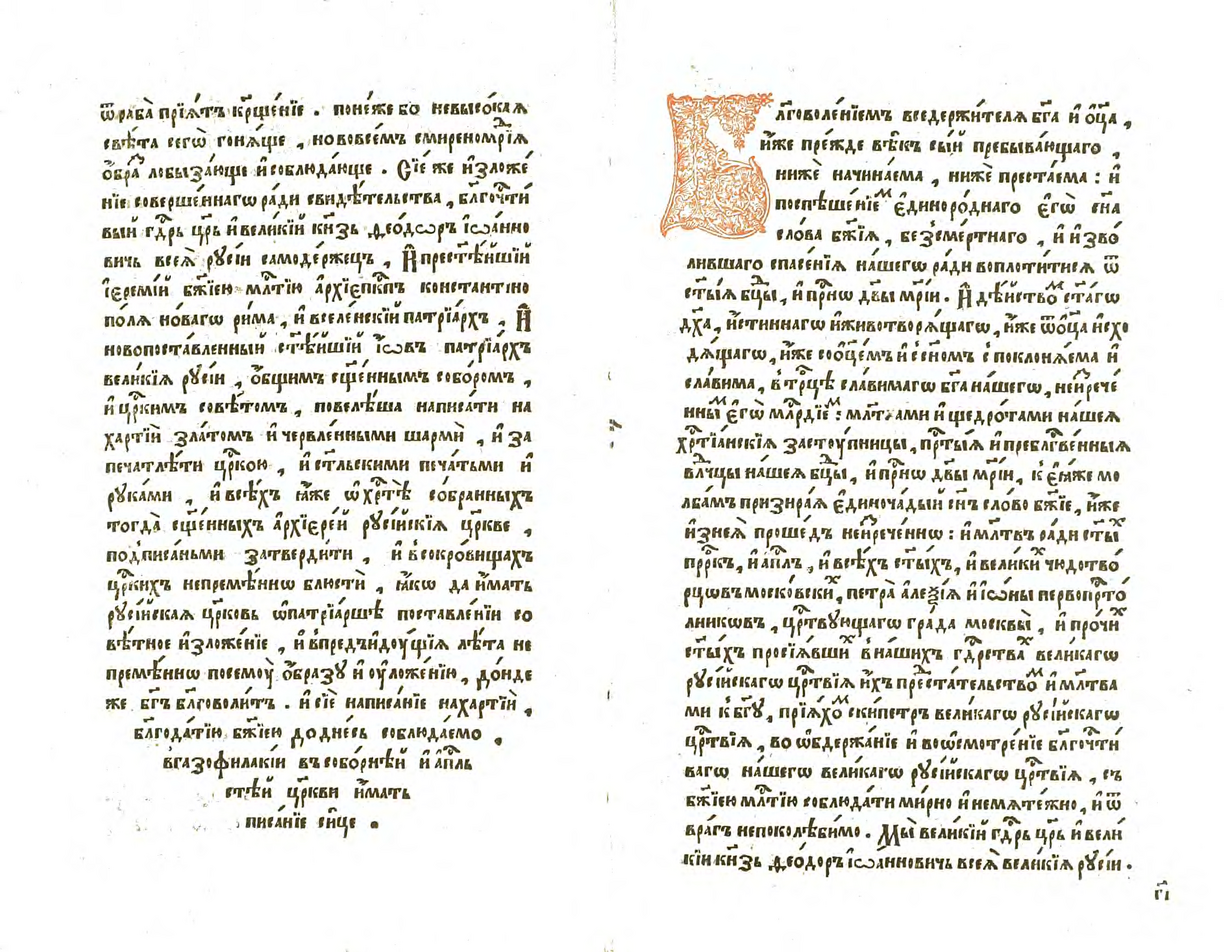 ѿраба̀ прїѧ́тъ кр҃ще́нїе . поне́же бо невысо́каѧ
свѣ́та сегѡ̀ гонѧ́ще , нововсе́мъ смиреномр҃їѧ
ѻ҆́бра лобыза́юще и҆соблюда́юще . Сїе́ же и҆зложе́
нїе соверше́ннагѡ ра́ди свидѣ́тельства , бл҃гочти́
вый гдⷭ҇рь цр҃ь и҆вели́кїй кнѧ́зь ѳео́дѡръ і҆ѡа́нно
вичь всеѧ̀ рꙋсі́и самоде́ржецъ , А҆прест҃ѣ́йшїй
і҆еремі́й бж҃їею мл҃тїю а҆рхїепⷭ҇кпъ константїно
по́лѧ но́вагѡ ри́ма , и҆ вселе́нскїй патрїа́рхъ , А҆
новопоста́вленный ст҃ѣ́йшїй і҆́ѡвъ патрїа́рхъ
вели́кїѧ рꙋсі́и , ѻ҆́бщимъ сщ҃е́ннымъ собо́ромъ ,
и҆ цр҃кимъ совѣ́томъ , повелѣ́ша написа́ти на
харті́й зла́томъ и҆ червле́нными шармѝ , и҆ за
печатлѣ́ти цр҃кою , и҆ ст҃льскими печа́тьми и҆
рꙋка́ми , и҆ всѣ́хъ ꙗ҆́же ѡ҆ хр҃тѣ̀ со́бранныхъ
тогда̀ сщ҃е́нныхъ а҆рхїере́й рꙋсі́йскїѧ цр҃кве ,
подписа́ньми затверди́ти , и҆ всокро́вищахъ
цр҃кихъ непремѣ́ннѡ блюстѝ , ꙗ҆́кѡ да и҆́мать
рꙋсі́йскаѧ цр҃ковь ѡ҆патрїа́ршѣ поставле́нїи со
вѣ́тное и҆зложе́нїе , и҆ впредъидꙋ́щїѧ лѣ́та не
премѣ́ннѡ посемоу̀ ѻ҆́бразꙋ и҆ оу҆ложе́нїю , до́нде
же бг҃ъ бл҃говоли́тъ . и҆ сїѐ написа́нїе нахарті́й ,
бл҃года́тїю бж҃їею до дне́сь соблюда́емо ,
вгазофила́кїи въ собо́рнѣй и҆ а҆пл҃ь
ст҃ѣ́й цр҃кви и҆́мать
писа́нїе си́це .
Бл҃говоле́нїемъ вседержи́телѧ бг҃а и҆ ѻ҆ц҃а̀ ,
и҆́же пре́жде вѣ́къ сы́й пребыва́ющаго ,
нижѐ начина́ема , нижѐ преста́ема : и҆
поспѣше́нїеⷨ є҆диноро́днаго є҆гѡ̀ сн҃а
сло́ва бж҃їѧ , безсме́ртнаго , и҆ и҆зво́
лившаго спасе́нїѧ на́шегѡ ра́ди воплоти́тисѧ ѿ
ст҃ы́ѧ бц҃ы , и҆ прⷭ҇нѡ дв҃ы мр҃і́и . А҆ дѣ́йствоⷨ ст҃а́гѡ
дх҃а , и҆́стиннагѡ и҆животворѧ́щагѡ , и҆́же ѿѻ҆ц҃а̀ и҆схо
дѧ́щагѡ , и҆́же соѻ҆ц҃е́мъ и҆ сс҃номъ споклонѧ́ема и҆
сла́вима , втрⷪ҇цѣ сла́вимагѡ бг҃а на́шегѡ , неи҆зрече́
нныⷨ є҆гѡ̀ млⷭ҇рдїеⷨ : мл҃твами и҆ щедро́тами на́шеѧ
хрⷭ҇тїа́нскїѧ засто́упницы , прⷭ҇тыѧ и҆ пребл҃гⷭ҇ве́нныѧ
влⷣчцы на́шеѧ бц҃ы , и҆ прⷭ҇нѡ дв҃ы мр҃і́и , кє҆ѧ́же мо
лба́мъ призира́ѧ є҆диноча́дый сн҃ъ сло́во бж҃їе , и҆́же
и҆знеѧ̀ проше́дъ неи҆зрече́ннѡ : и҆ мл҃твъ ра́ди ст҃ыⷯ
прⷪ҇ркъ , и҆ а҆пл҃ъ , и҆ всѣ́хъ ст҃ы́хъ , и҆ вели́киⷯ чюдотво́
рцѡвъ моско́вскиⷯ , петра̀ а҆ле́ѯїѧ и҆ і҆ѡ́ны первопрⷭ҇то́
лникѡвъ , цр҃твꙋ́ющагѡ гра́да москвы̀ , и҆ про́чиⷯ
ст҃ы́хъ просїѧ́вшиⷯ вна́шихъ гдⷭ҇рстваⷯ вели́кагѡ
рꙋсі́йскагѡ црⷭ҇твїѧ и҆́хъ предста́тельствоⷨ и҆ мл҃тва
ми кбг҃ꙋ , прїѧ́хоⷨ ски́петръ вели́кагѡ рꙋсі́йскагѡ
црⷭ҇твїѧ , во ѡ҆бдержа́нїе и҆ воѡ҆смотре́нїе бл҃гочти́
вагѡ на́шегѡ вели́кагѡ рꙋсі́йскагѡ црⷭ҇твїѧ , съ
бж҃їею мл҃тїю соблюда́ти ми́рно и҆ немѧте́жно , и҆ ѿ
вра́гъ непоколѣби́мо . Мы̀ вели́кїй гдⷭ҇рь цр҃ь и҆ вели́
кїи кнѧ́зь ѳео́доръ і҆ѡа́нновичь всеѧ̀ вели́кїѧ рꙋсі́и .
г҃і